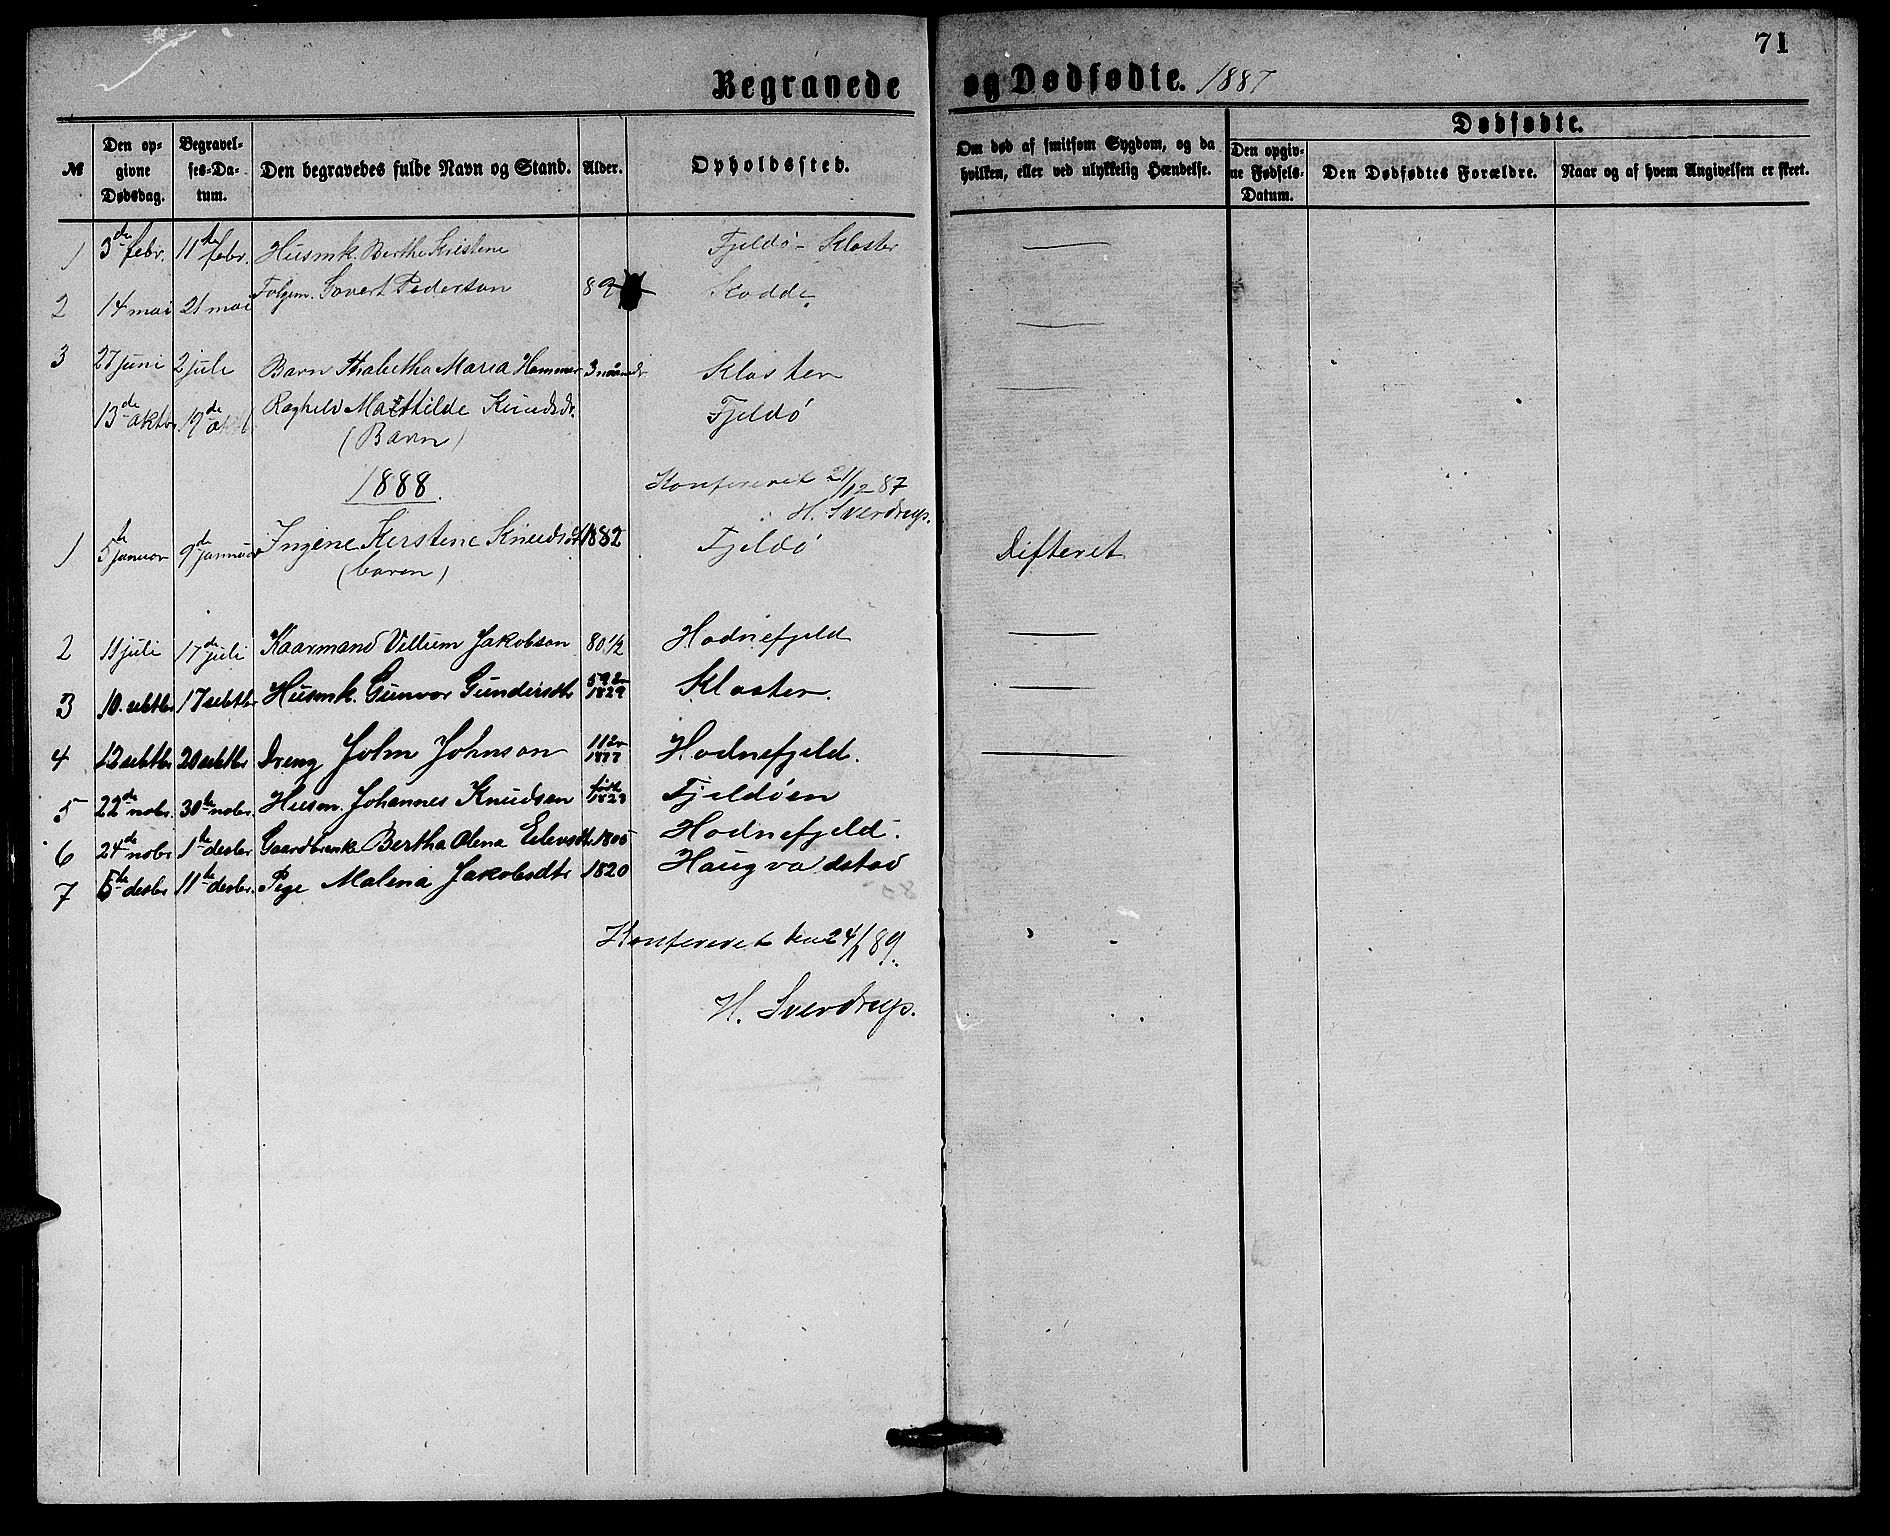 71
Begravede og Dødfødte. 1887
№ | Den opgivne Dødsdag. | Begravelses-Datum. | Den begravedes fulde Navn og Stand. | Alder. | Opholdssted. | Om død af smitsom Sygdom, og da hvilken, eller ved ulykkelig Hændelse. | Dødfødte. | Den opgivne Fødsels-Datum. | Den Dødfødtes Forældre. | Naar og af hvem Angivelsen er skeet.
1 | 3de febr. | 11te febr. | Husmk. Berthe Kristene | Fjeldö - Kloster | —
2 | 14 mai | 21 mai | Folgem. Govert Pederson | 82 | Kodde | —
3 | 27 juni | 2 juli | Barn Thabetha Maria Hammer | 3 | Kloster | —
13de aktbr. | 19de akt | Ragheld Matthilde Knudsdr. | Fjeldö
(Barn)
1888.
Konfereret 21/12 87
H. Sverdrup.
1 | 5te januar | 9de januar | Ingene Kerstene Knudsdr | 1882 | Fjeldö | Difterit
(barn)
2 | 11 juli | 17de juli | Kaarmand Villum Jakobson | 80 1/2 | Hodnefjeld | —
3 | 10. sebtbr | 17 sebtbr | Husmk. Gunvor Gundersdtr | 59 år 1829 | Kloster. | —
4 | 12 sebtbr | 20 sebtbr | Dreng John Johnson | 11 år 1877 | Hodnefjeld. | —
5 | 22de nobr. | 30te nobr. | Husm. Johannes Knudsen | født 1823 | Fjeldöen
6 | 24de nobr | 1te desbr | Gaardbrenke Bertha Olena Eilevsdtr | 1805 | Hodnefjeld.
7 | 5te desbr | 11te desbr. | Pige Malena Jakobsdtr | 1820 | Haugvadstad
Konfereret den 24/1 89.
H. Sverdrup.